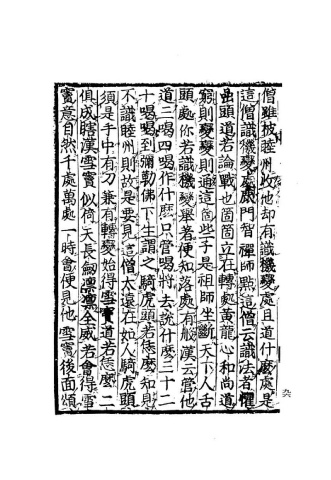 僧雖被睦州收他却有識機變處且道什麽處是
這僧識機變處鹿門智禪師點這僧云識法者懼
嵓頭道若論戰也箇箇立在轉處黃龍心和尚道
窮則變變則通這箇些子是祖師坐斷天下人舌
頭處你若識機變舉著便知落處有般漢云管他
道三喝四喝作什麽只管喝將去說什麽三十二
十喝喝到彌勒佛下生謂之騎虎頭若恁麽知見
不識睦州則故是要見這僧太遠在如人騎虎頭
須是手中有刀兼有轉變始得雪竇道若恁麽二
俱成瞎漢雪竇似倚天長劔凛凛全威若會得雪
竇意自然千處萬處一時會便見他雪竇後面頌